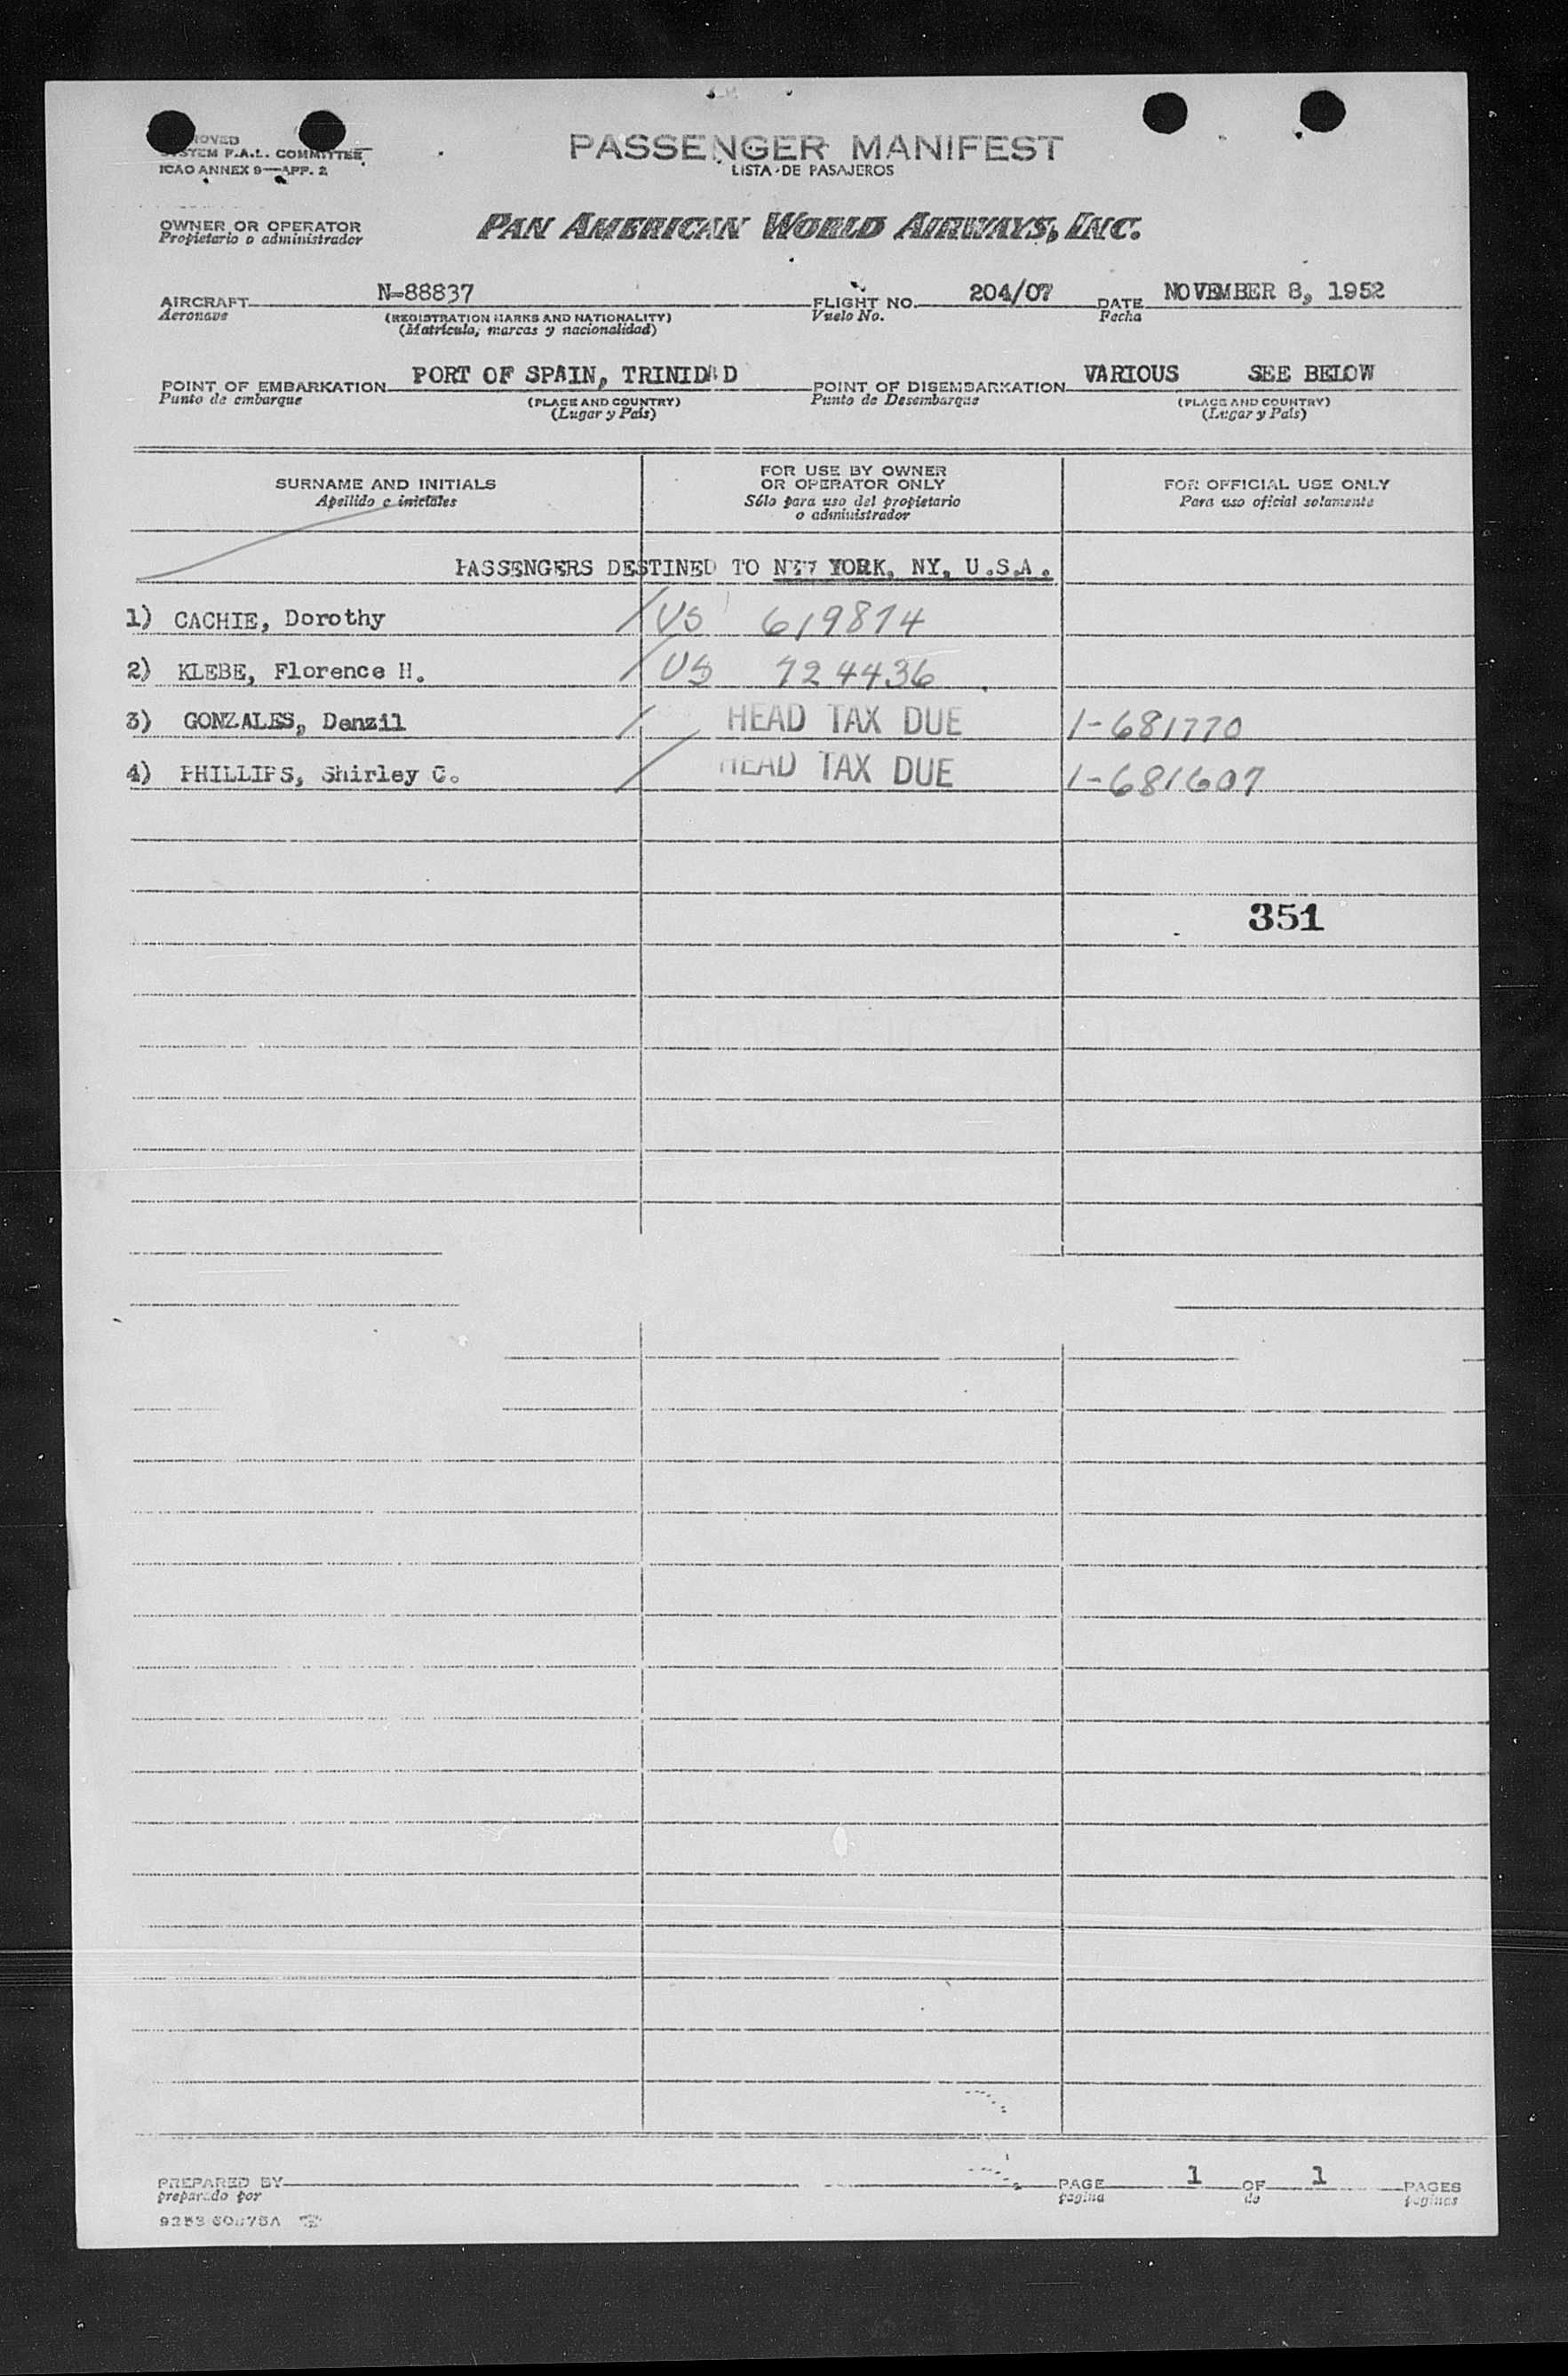 PASSENGER MANIFEST
LISTA DE PASAJEROS
SYSTEM F.A.L. COMMITTEE
ICAO ANNEX 9—APP. 2
OWNER OR OPERATOR
Propietario o administrador
PAN AMERICAN WORLD AIRWAYS, INC.
AIRCRAFT N-88837 FLIGHT NO. 204/07 DATE NOVEMBER 8, 1952
Aeronave (REGISTRATION MARKS AND NATIONALITY) Vuelo No. Fecha
(Matrícula, marcas y nacionalidad)
POINT OF EMBARKATION PORT OF SPAIN, TRINIDAD POINT OF DISEMBARKATION VARIOUS SEE BELOW
Punto de embarque (PLACE AND COUNTRY) Punto de Desembarque (PLACE AND COUNTRY)
(Lugar y País) (Lugar y País)
SURNAME AND INITIALS
Apellido e iniciales
FOR USE BY OWNER
OR OPERATOR ONLY
Sólo para uso del propietario
o administrador
FOR OFFICIAL USE ONLY
Para uso oficial solamente
PASSENGERS DESTINED TO NEW YORK, NY, U.S.A.
1) CACHIE, Dorothy US 619874
2) KLEBE, Florence H. US 724436
3) GONZALES, Denzil HEAD TAX DUE 1-681770
4) PHILLIPS, Shirley C. HEAD TAX DUE 1-681607
351
PREPARED BY PAGE 1 OF 1 PAGES
preparado por página de páginas